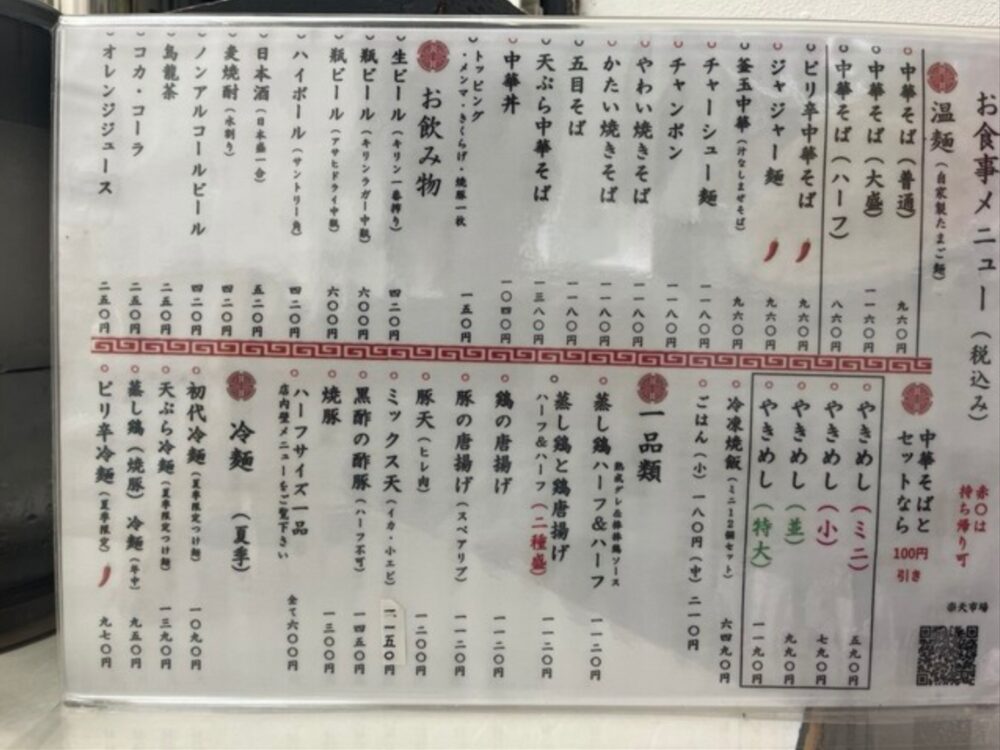 お食事メニュー（税込み）
温麺（自家製たまご麺）
中華そば（普通） 九六〇円
中華そば（大盛） 一一六〇円
中華そば（ハーフ） 八六〇円
ピリ辛中華そば 九六〇円
ジャジャー麺 九六〇円
釜玉中華（汁なしまぜそば） 九六〇円
チャーシュー麺 一一八〇円
チャンポン 一一八〇円
やわい焼きそば 一一八〇円
かたい焼きそば 一一八〇円
五目そば 一一八〇円
天ぷら中華そば 一三八〇円
中華丼 一〇四〇円
トッピング
・メンマ・きくらげ・焼豚一枚 一五〇円
お飲み物
生ビール（キリン一番搾り） 四二〇円
瓶ビール（キリンラガー中瓶） 六〇〇円
瓶ビール（アサヒドライ中瓶） 六〇〇円
ハイボール（サントリー角） 四二〇円
日本酒（日本盛一合） 五二〇円
麦焼酎（水割り） 四二〇円
ノンアルコールビール 四二〇円
烏龍茶 二五〇円
コカ・コーラ 二五〇円
オレンジジュース 二五〇円
赤〇は
持ち帰り可
楽天市場
中華そばと
セットなら
100円
引き
やきめし（ミニ） 五九〇円
やきめし（小） 七九〇円
やきめし（並） 九九〇円
やきめし（特大） 一一九〇円
冷凍焼飯（ミニ12個セット） 六四九〇円
ごはん（小）一八〇円（中）二一〇円
一品類
蒸し鶏ハーフ&ハーフ 一一二〇円
蒸し鶏と鶏唐揚げ
ハーフ&ハーフ（二種盛） 一一二〇円
鶏の唐揚げ 一一二〇円
豚の唐揚げ（スペアリブ） 一一二〇円
豚天（ヒレ肉） 一二〇〇円
ミックス天（イカ・小エビ） 二一五〇円
黒酢の酢豚（ハーフ不可） 一四五〇円
焼豚 一三〇〇円
ハーフサイズ一品
店内壁メニューをご覧下さい 全て六〇〇円
冷麺（夏季）
初代冷麺（夏季限定つけ麺） 一〇九〇円
天ぷら冷麺（夏季限定つけ麺） 一三九〇円
蒸し鶏（焼豚）冷麺（年中） 九五〇円
ピリ辛冷麺（夏季限定） 九七〇円